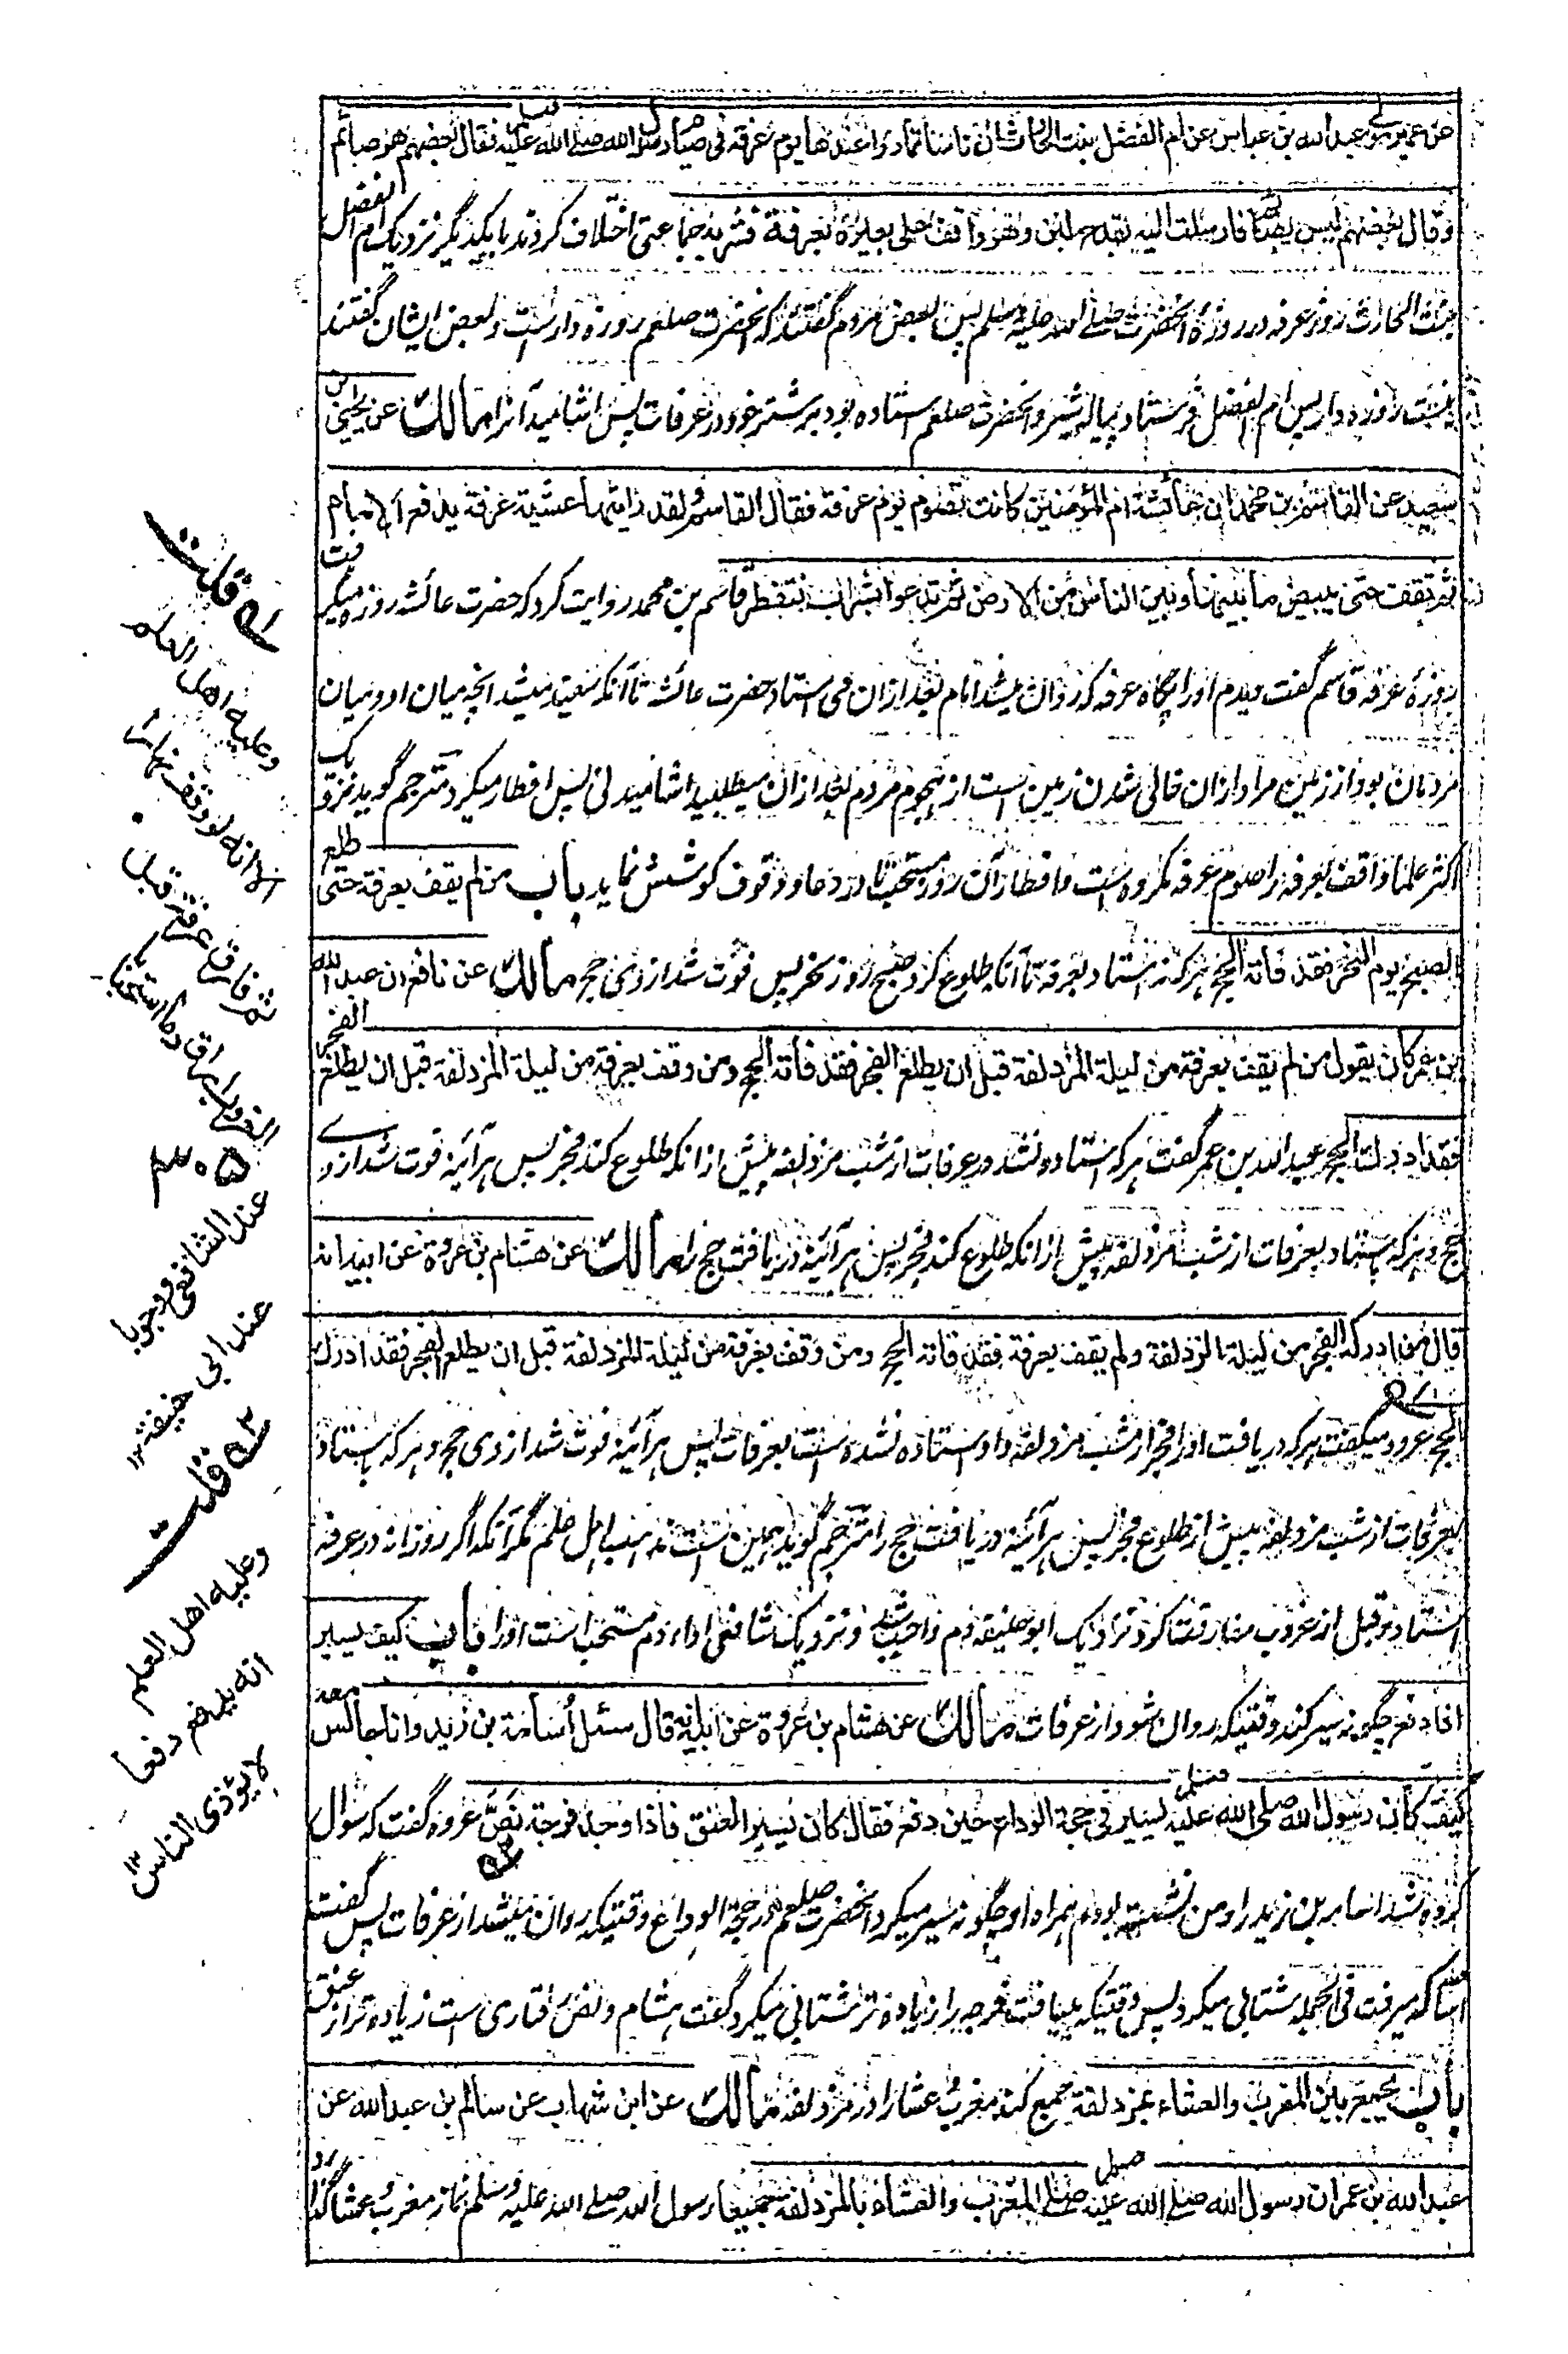 عن عمیر مولی عبد الله بن عباس عن ام الفضل بنت الحارث ان ناسا تماروا عندها یوم عرفة فی صیام رسول الله صلی الله علیه وسلم فقال بعضهم هو صائم
وقال بعضهم لیس بصائم فارسلت الیه بقدح لبن وهو واقف علی بعیره بعرفة فشربه جماعتی اختلاف کردند با یکدیگر نزدیک ام الفضل
بنت الحارث روز عرفه در روزهٔ آنحضرت صلی الله علیه وسلم پس بعض مردم گفتند که آنحضرت صلعم روزه دار است و بعض ایشان گفتند
نیست روزه دار پس ام الفضل فرستاد پیاله شیر و آنحضرت صلعم استاده بود بر شتر خود در عرفات پس آشامید آنرا مالك عن یحیی بن
سعید عن القاسم بن محمد ان عائشة ام المؤمنین کانت تصوم یوم عرفة فقال القاسم ولقد رایتها عشیة عرفة یدفع الامام
ثم تقف حتی یبیض ما بینها وبین الناس من الارض ثم تدعو بشراب فتفطر قاسم بن محمد روایت کرد که حضرت عائشه روزه میگرفت
روزهٔ عرفه قاسم گفت دیدم او را پگاه عرفه که روان میشد امام بعد ازان می استاد حضرت عائشه تا آنکه سفید میشد آنچه میان او و میان
مردمان بود از زمین مراد ازان خالی شدن زمین است از هجوم مردم بعد ازان میطلبید آشامیدنی پس افطار میکرد مترجم گوید نزدیک
اکثر علما واقف بعرفه را صوم عرفه مکروه است و افطار آن روز مستحب تا در دعا و وقوف کوشش نماید باب من لم یقف بعرفة حتی طلع
الصبح یوم النحر فقد فاته الحج هر که نه استاد بعرفه تا آنکه طلوع کرد صبح روز نحر پس فوت شد از وی حج مالك عن نافع ان عبد الله
بن عمر کان یقول من لم یقف بعرفة من لیلة المزدلفة قبل ان یطلع الفجر فقد فاته الحج ومن وقف بعرفة من لیلة المزدلفة قبل ان یطلع الفجر
فقد ادرك الحج عبد الله بن عمر گفت هر که استاده نشد در عرفات از شب مزدلفه پیش ازانکه طلوع کند فجر پس هرآئینه فوت شد از وے
حج و هر که باستاد بعرفات از شب مزدلفه پیش ازانکه طلوع کند فجر پس هرآئینه دریافت حج را مالك عن هشام بن عروة عن ابیه انه
قال من ادرکه الفجر من لیلة المزدلفة ولم یقف بعرفة فقد فاته الحج ومن وقف بعرفة من لیلة المزدلفة قبل ان یطلع الفجر فقد ادرك
الحج عروه میگفت هر که دریافت او را فجر از شب مزدلفه و او استاده نشده است بعرفات پس هرآئینه فوت شد از وی حج و هر که باستاد
بعرفات از شب مزدلفه پیش از طلوع فجر پس هرآئینه دریافت حج را مترجم گوید همین است مذهب اهل علم مگر آنکه اگر روزانه در عرفه
استاد و قبل از غروب مفارقت کرد نزدیک ابو حنیفه دم واجب شد و نزدیک شافعی اداء دم مستحب است او را باب کیف یسیر
اذا دفع چگونه سیر کند وقتیکه روان شود از عرفات مالك عن هشام بن عروة عن ابیه انه قال سئل اسامة بن زید وانا جالس معه
کیف کان رسول الله صلی الله علیه وسلم یسیر فی حجة الوداع حین دفع فقال کان یسیر العنق فاذا وجد فرجة نص عروه گفت که سوال
کرده شد اسامه بن زید را و من نشسته بودم همراه او چگونه سیر میکرد آنحضرت صلعم در حجة الوداع وقتیکه روان میشد از عرفات پس گفت
اسامه که میرفت فی الجمله شتابی میکرد پس وقتیکه مییافت فرجه را زیاده تر شتابی میکرد گفت هشام و نص رفتاری است زیاده تر از عنق
باب یجمع بین المغرب والعشاء بمزدلفة جمع کند مغرب و عشا را در مزدلفه مالك عن ابن شهاب عن سالم بن عبد الله عن
عبد الله بن عمر ان رسول الله صلی الله علیه وسلم صلی المغرب والعشاء بالمزدلفة جمیعا رسول الله صلی الله علیه وسلم نماز مغرب و عشا گذارد
له قلت
وعلیه اهل العلم
الا انه لو وقف نهارا
ثم فارق عرفة قبل
الغروب اراق دما استحبابا
عند الشافعی ووجوبا
عند ابی حنیفة ۱۲
قلت
وعلیه اهل العلم
انه یدفع دفعا
لا یؤذی الناس ۱۲